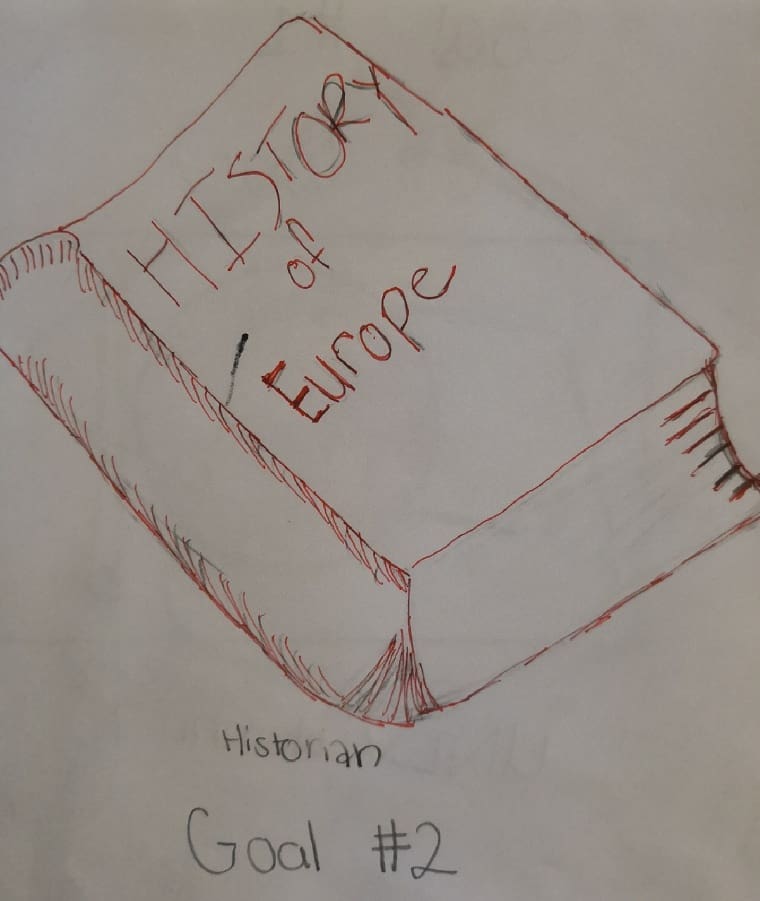 HISTORY
of
Europe
Historian
Goal #2